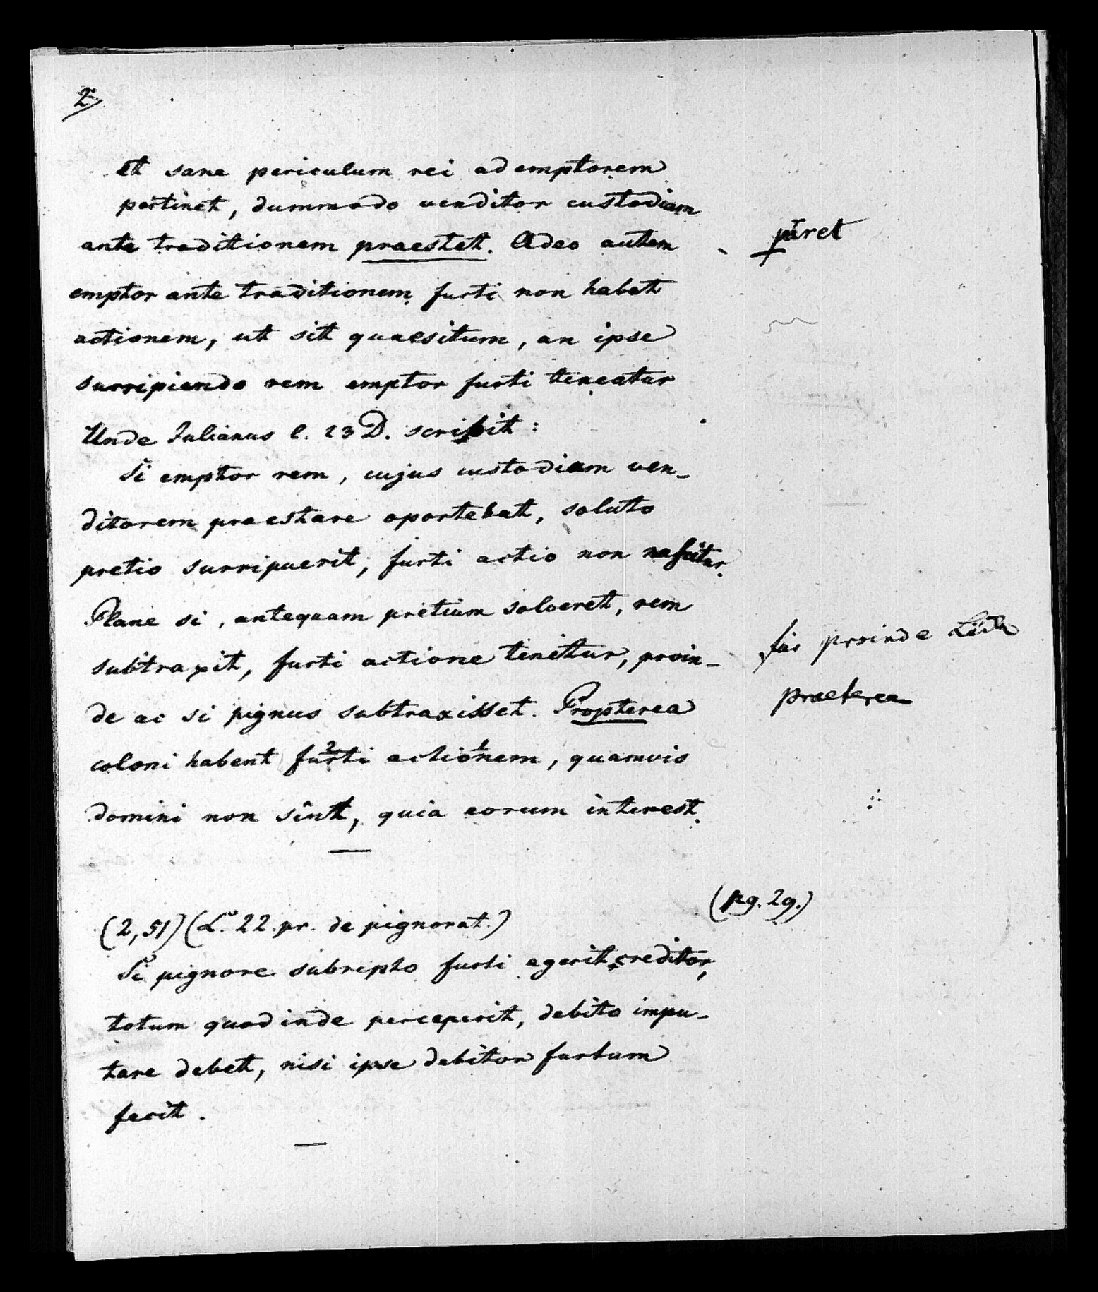 2)
Et sane periculum rei ad emptorem
pertinet, dummodo venditor custodiam
ante traditionem praestet. Adeo autem
pūret
emptor ante traditionem furti non habet
actionem, ut sit quaesitum, an ipse
surripiendo rem emptor furti teneatur
Unde Julianus l. 23 D. scribit:
Si emptor rem, cujus custodiam ven-
ditorem praestare oportebat, soluto
pretio surripuerit, furti actio non nascitur.
Plane si, antequam pretium solveret, rem
subtraxit, furti actione tenetur, proin-
proinde
de ac si pignus subtraxisset. Propterea
praeterea
coloni habent furti² actionem¹, quamvis
domini non sint, quia eorum interest.
(pg. 29.)
(2,51) (L. 22. pr. de pignorat.)
Si pignore subrepto furti egerit creditor,
totum quod inde perceperit, debito impu-
tare debet, nisi ipse debitor furtum
fecit.